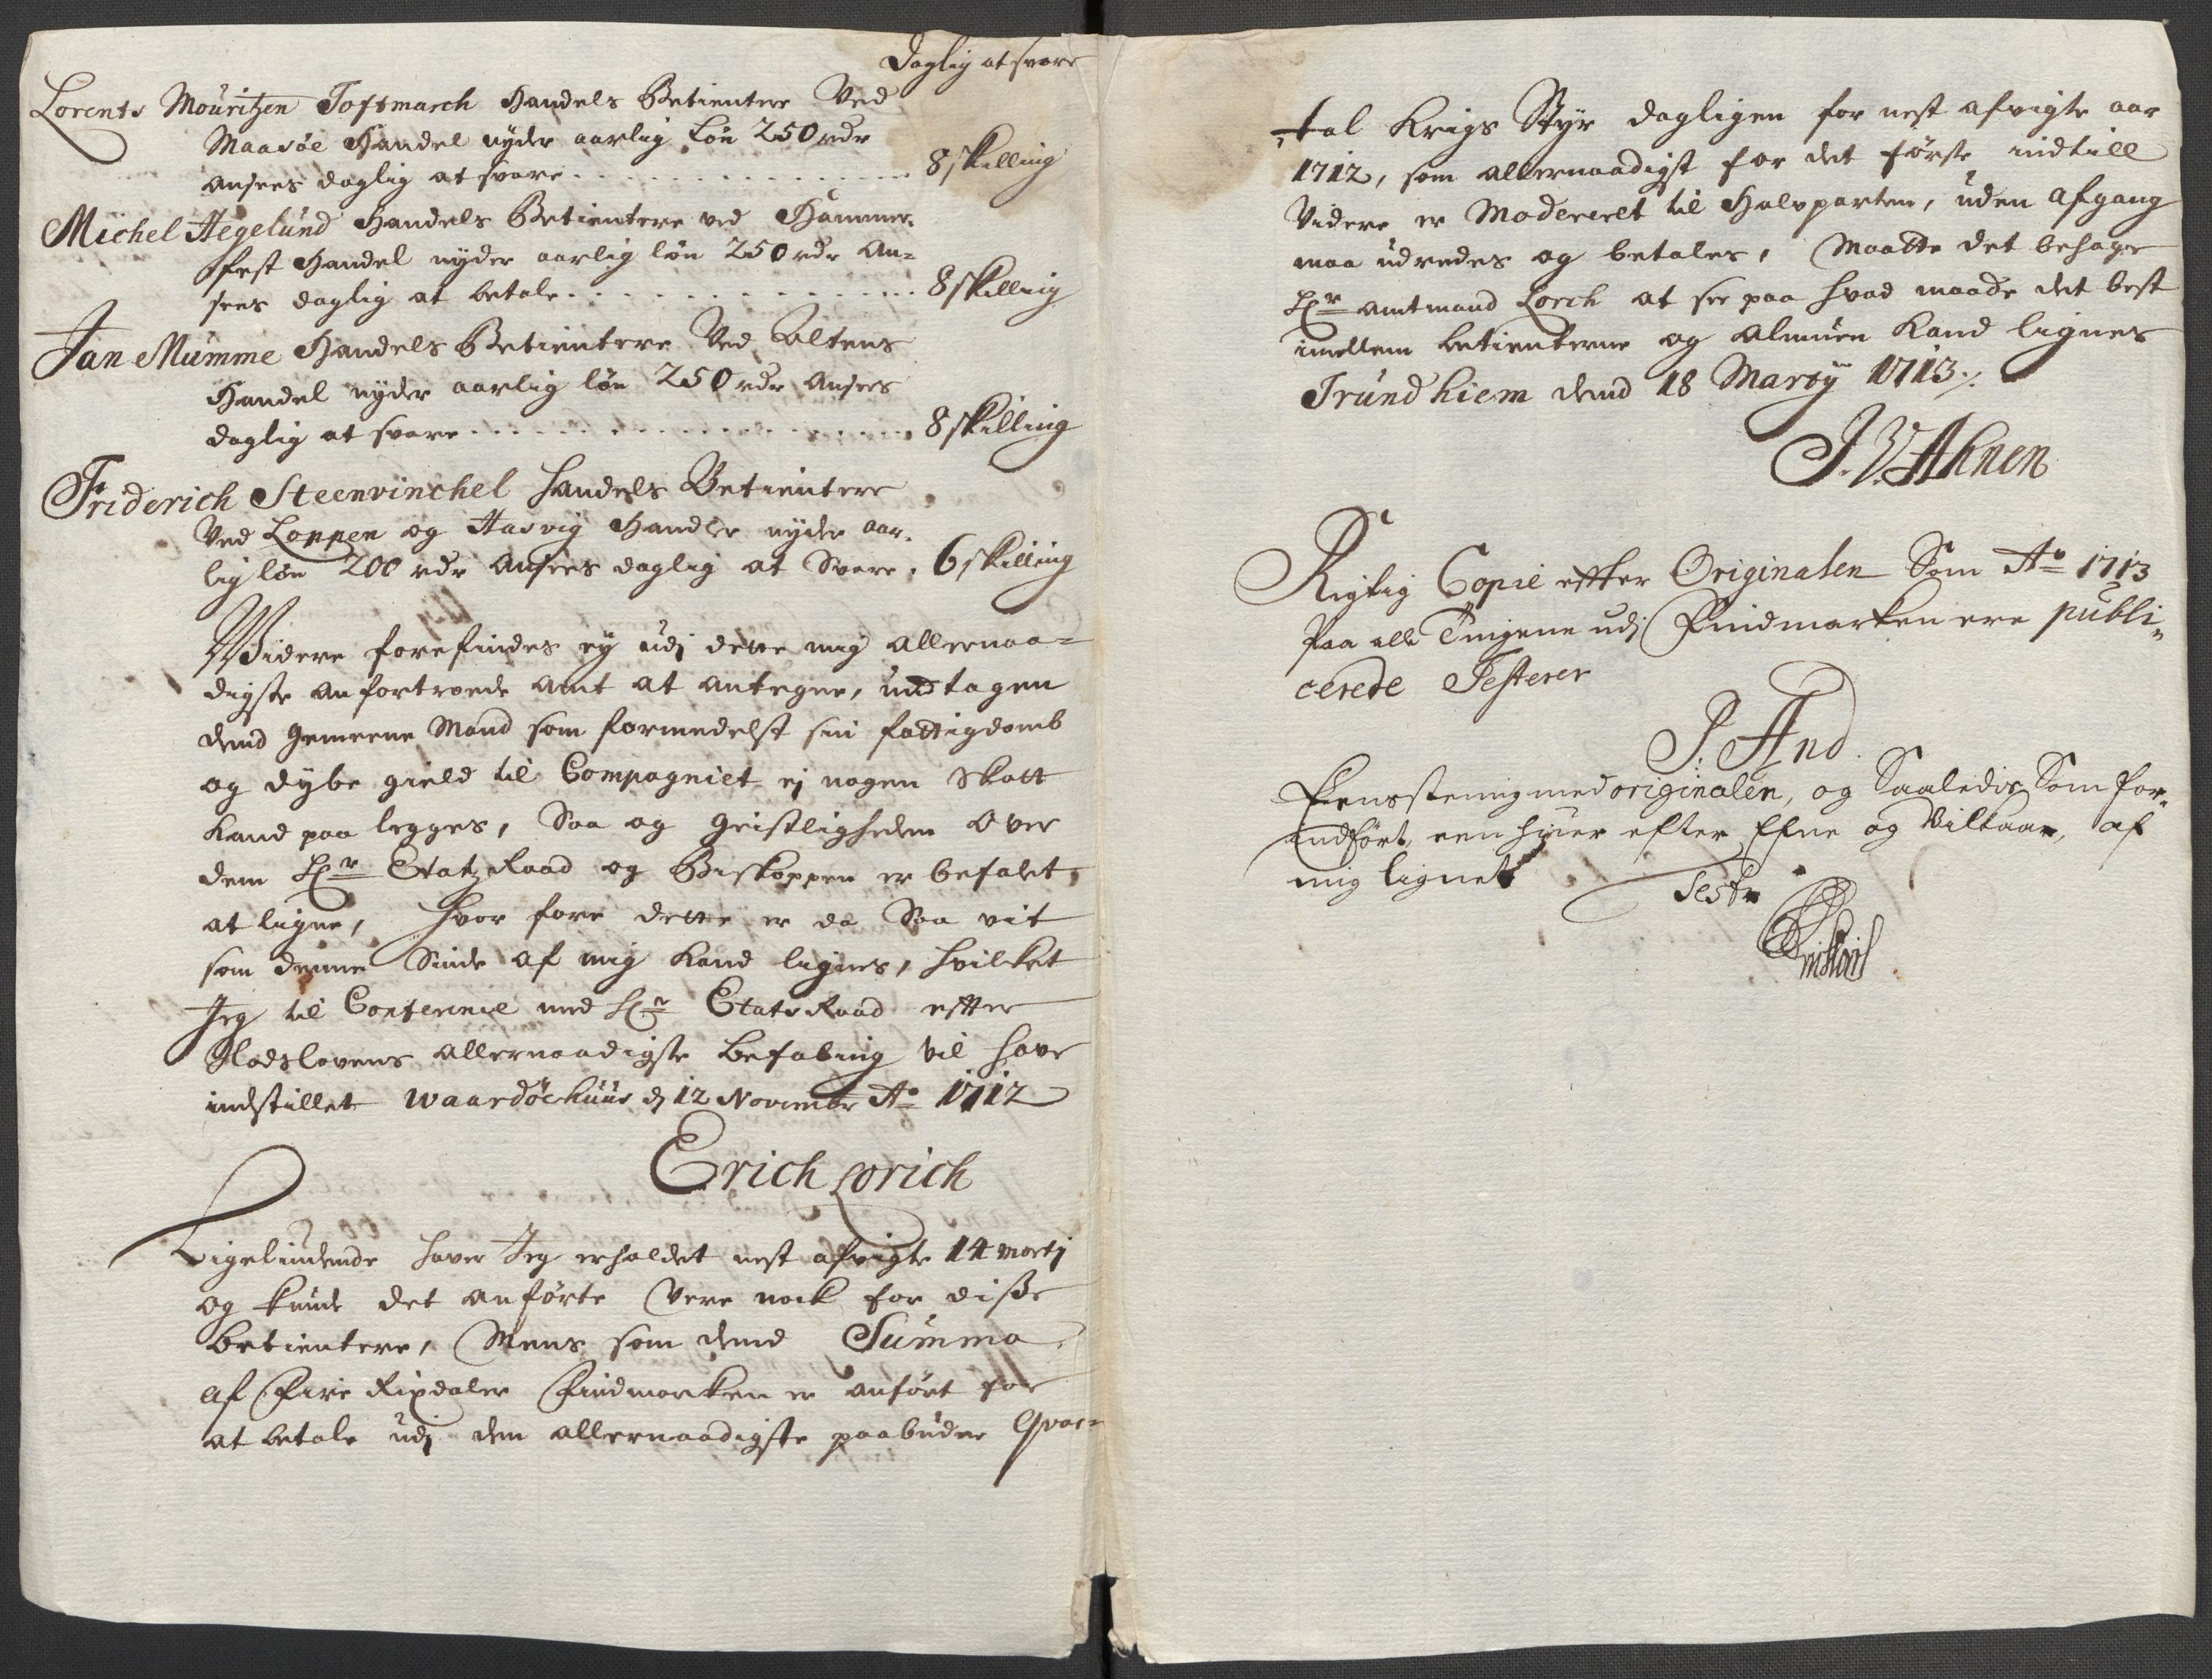 Daglig at svare
Lorents Mouritzen Toftmarch Handels Betientere Ved
Maasøe Handel nyder aarlig løn 250 rdr
ansees daglig at svare . . . . . . . . . . . . . . 8 skilling
Michel Hegelund Handels Betientere ved Hammer-
fest Handel nyder aarlig løn 250 rdr An=
sees daglig at betale . . . . . . . . . . . . . . 8 skilling
Jan Mumme Handels Betientere Ved Altens
Handel nyder aarlig løn 250 rdr Ansees
daglig at svare . . . . . . . . . . . . . . 8 skilling
Friderich Steenvinchel Handels Betientere
Ved Loppen og Hasvig Handler nyder aar-
lig løn 200 rdr Ansees daglig at Svare . 6 skilling
Widere forefindes ey udj dette mig allernaa=
digste anfortroede Amt at antegne, undtagen
dend Gemeene Mand som formedelst sin fattigdomb
og dybe gield til Compagniet ej nogen Skatt
kand paa legges, Saa og Geistligheden Over
dem Hr Etatz Raad og Biskoppen er befalet
at ligne, Hvor fore dette er da Saa vit
som denne Sinde af mig kand lignes, Hvilket
Jeg til Conferince med Hr Etats Raad efter
Slodslovens allernaadigste befaling vil have
indstillet Waardøehuus d 12 Novembr Ao 1712
Erich Lorich
Ligeliudende haver Jeg erholdet nest afvigte 14 Martj
og kunde det anførte Vere nock for disse
betientere, Mens som dend Summa
af Fire Rixdaler Findmarken er anført for
at betale udj den allernaadigste paabudne Qvar=
=tal Krigs Styr dagligen for nest afvigte aar
1712, som allernaadigst for det første indtill
Videre er Modereret til Halvparten, uden afgang
maa udredes og betales, Maatte det behage
Hr amtmand Lorch at see paa hvad maade det best
imellem betienterne og almuen kand lignes
Trundhiem dend 18 Martij 1713 ./.
J. V. Ahnen
Rigtig Copie efter Originalen Som Ao 1713
Paa alle Tingene udj Findmarken ere publi=
cerede Testerer
P. And
Eensstemig med originalen, og Saaledis Som for-
indført, een hver efter Efne og Vilkaar, af
mig lignet Test